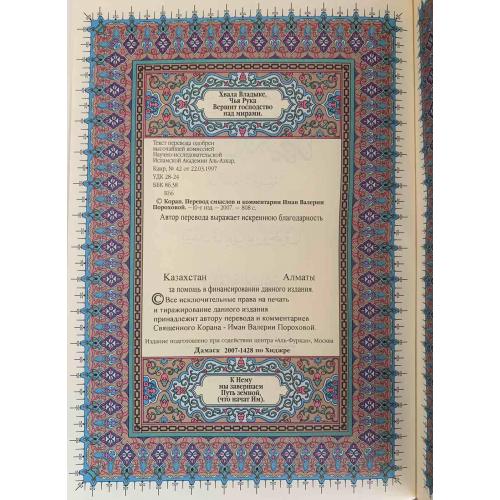 Хвала Владыке,
Чья Рука
Вершит господство
над мирами.
Текст перевода одобрен
высочайшей комиссией
Научно-исследовательской
Исламской Академии Аль-Азхар.
Каир, № 42 от 22.03.1997
УДК 28-24
ББК 86.38
К66
© Коран. Перевод смыслов и комментарии Иман Валерии
Пороховой. –10-е изд. – 2007. – 808 с.
Автор перевода выражает искреннюю благодарность
Казахстан Алматы
за помощь в финансировании данного издания.
© Все исключительные права на печать
и тиражирование данного издания
принадлежит автору перевода и комментариев
Священного Корана - Иман Валерии Пороховой.
Издание подготовлено при содействии центра «Аль-Фуркан», Москва
Дамаск 2007-1428 по Хиджре
К Нему
мы завершаем
Путь земной,
(что начат Им).